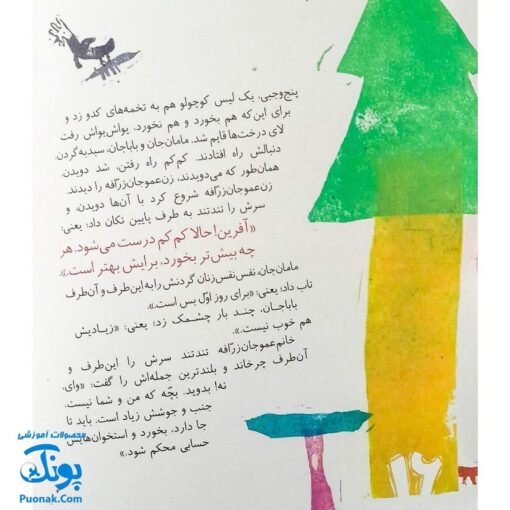 پنج‌وجبی، یک لیس کوچولو هم به تخمه‌های کدو زد و
برای این‌که هم بخورد و هم نخورد، یواش‌یواش رفت
لای درخت‌ها قایم شد. مامان‌جان و باباجان، سبد به گردن،
دنبالش راه افتادند. کم‌کم راه رفتن، شد دویدن.
همان‌طور که می‌دویدند، زن‌عموجان‌زرّافه را دیدند.
زن‌عموجان‌زرّافه شروع کرد با آن‌ها دویدن، و
سرش را تندتند به طرف پایین تکان داد؛ یعنی:
«آفرین! حالا کم کم درست می‌شود. هر
چه بیش‌تر بخورد، برایش بهتر است.».
مامان‌جان، نفس‌نفس‌زنان گردنش را به این‌طرف و آن‌طرف
تاب داد؛ یعنی: «برای روز اوّل بس است.».
باباجان، چند بار چشمک زد؛ یعنی: «زیادیش
هم خوب نیست.».
خانم‌عموجان‌زرّافه تندتند سرش را این‌طرف و
آن‌طرف چرخاند و بلندترین جمله‌اش را گفت: «وای،
نه! بدوید. بچّه که من و شما نیست.
جنب و جوشش زیاد است. باید تا
جا دارد، بخورد و استخوان‌هایش
حسابی محکم شود.»
۱۶
محصولات آموزشی
پونک
Puonak.Com